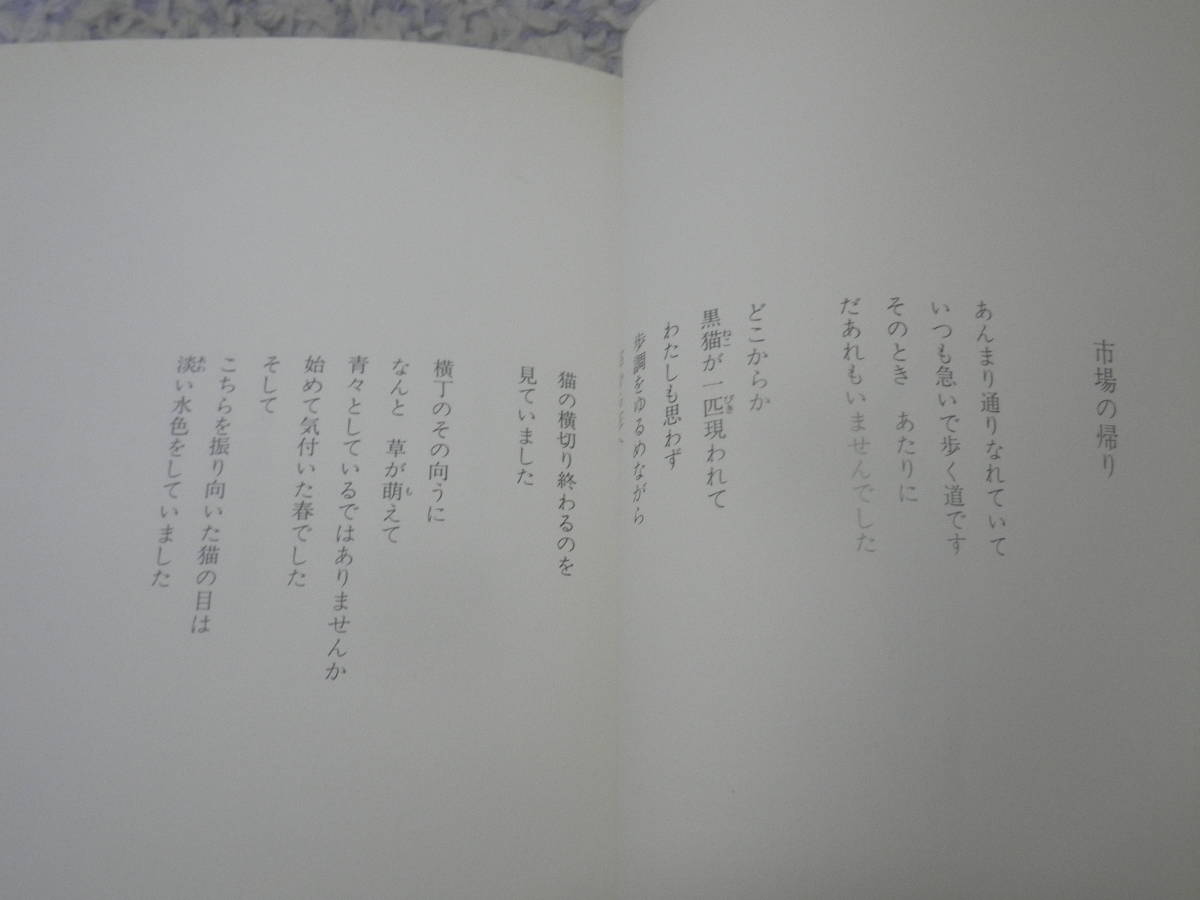 市場の帰り
あんまり通りなれていて
いつも急いで歩く道です
そのとき　あたりに
だあれもいませんでした
どこからか
黒猫が一匹現われて
わたしも思わず
歩調をゆるめながら
猫の横切り終わるのを
見ていました
横丁のその向うに
なんと　草が萌えて
青々としているではありませんか
始めて気付いた春でした
そして
こちらを振り向いた猫の目は
淡い水色をしていました